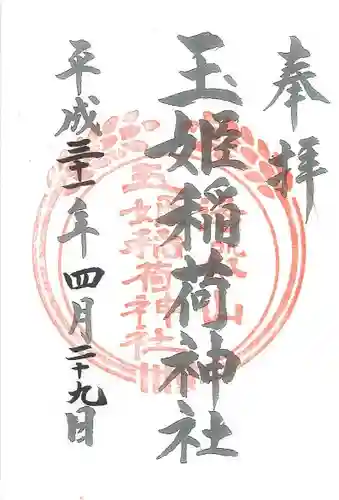 奉拝
玉姫稲荷神社
平成三十一年四月二十九日
玉姫稲荷神社